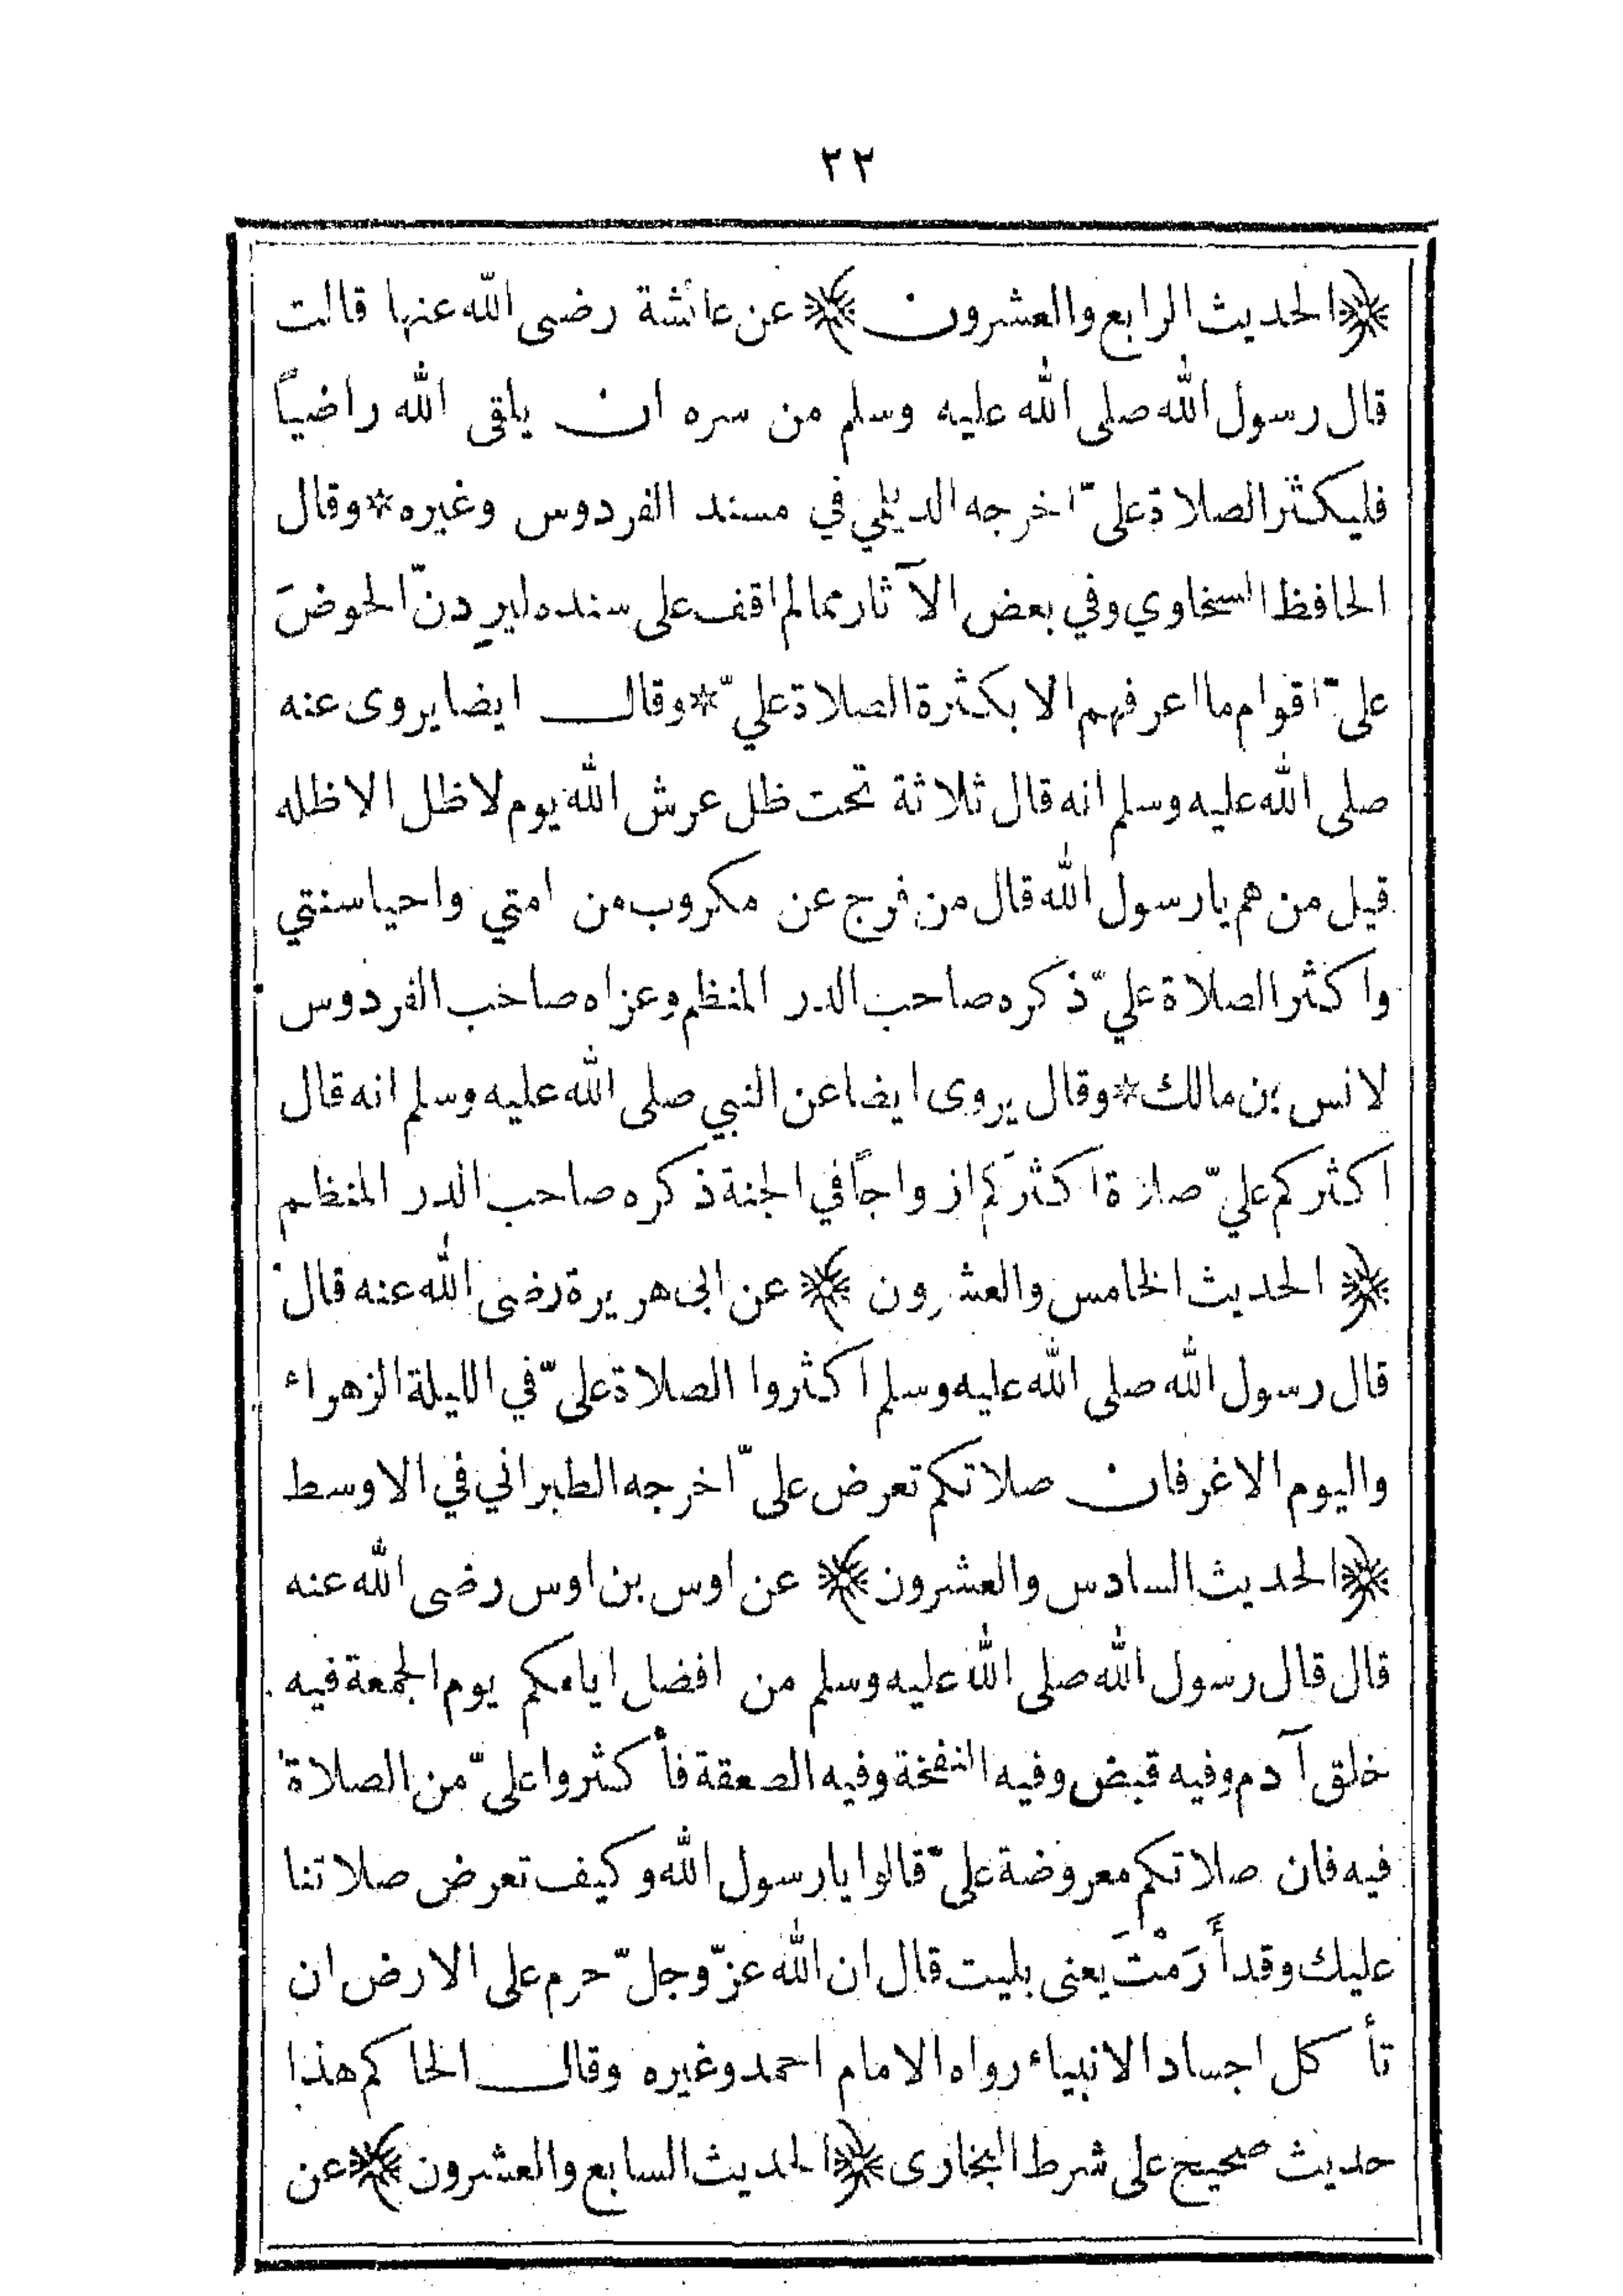 ٢٣
﴿الحديث الرابع والعشرون﴾ عن عائشة رضى الله عنها قالت
قال رسول الله صلى الله عليه وسلم من سره ان يلقى الله راضياً
فليكثر الصلاة علىّ اخرجه الديلمي في مسند الفردوس وغيره*وقال
الحافظ السخاوي وفي بعض الآثار مما لم اقف على سنده ليردنّ الحوضَ
علىّ اقوام ما اعرفهم الا بكثرة الصلاة عليّ*وقال ايضا يروى عنه
صلى الله عليه وسلم انه قال ثلاثة تحت ظل عرش الله يوم لا ظل الا ظله
قيل من هم يا رسول الله قال من فرج عن مكروب من امتي واحيا سنتي
واكثر الصلاة عليّ ذكره صاحب الدر المنظم وعزاه صاحب الفردوس
لانس بن مالك*وقال يروى ايضا عن النبي صلى الله عليه وسلم انه قال
اكثركم عليّ صلاة اكثركم ازواجاً في الجنة ذكره صاحب الدر المنظم
﴿الحديث الخامس والعشرون﴾ عن ابى هريرة رضى الله عنه قال
قال رسول الله صلى الله عليه وسلم اكثروا الصلاة علىّ في الليلة الزهراء
واليوم الاغر فان صلاتكم تعرض علىّ اخرجه الطبراني في الاوسط
﴿الحديث السادس والعشرون﴾ عن اوس بن اوس رضى الله عنه
قال قال رسول الله صلى الله عليه وسلم من افضل ايامكم يوم الجمعة فيه
خلق آدم وفيه قبض وفيه النفخة وفيه الصعقة فأكثروا علىّ من الصلاة
فيه فان صلاتكم معروضة علىّ قالوا يا رسول الله وكيف تعرض صلاتنا
عليك وقد أَرَمْتَ يعنى بليت قال ان الله عزّ وجلّ حرم على الارض ان
تأكل اجساد الانبياء رواه الامام احمد وغيره وقال الحاكم هذا
حديث صحيح على شرط البخارى ﴿الحديث السابع والعشرون﴾ عن